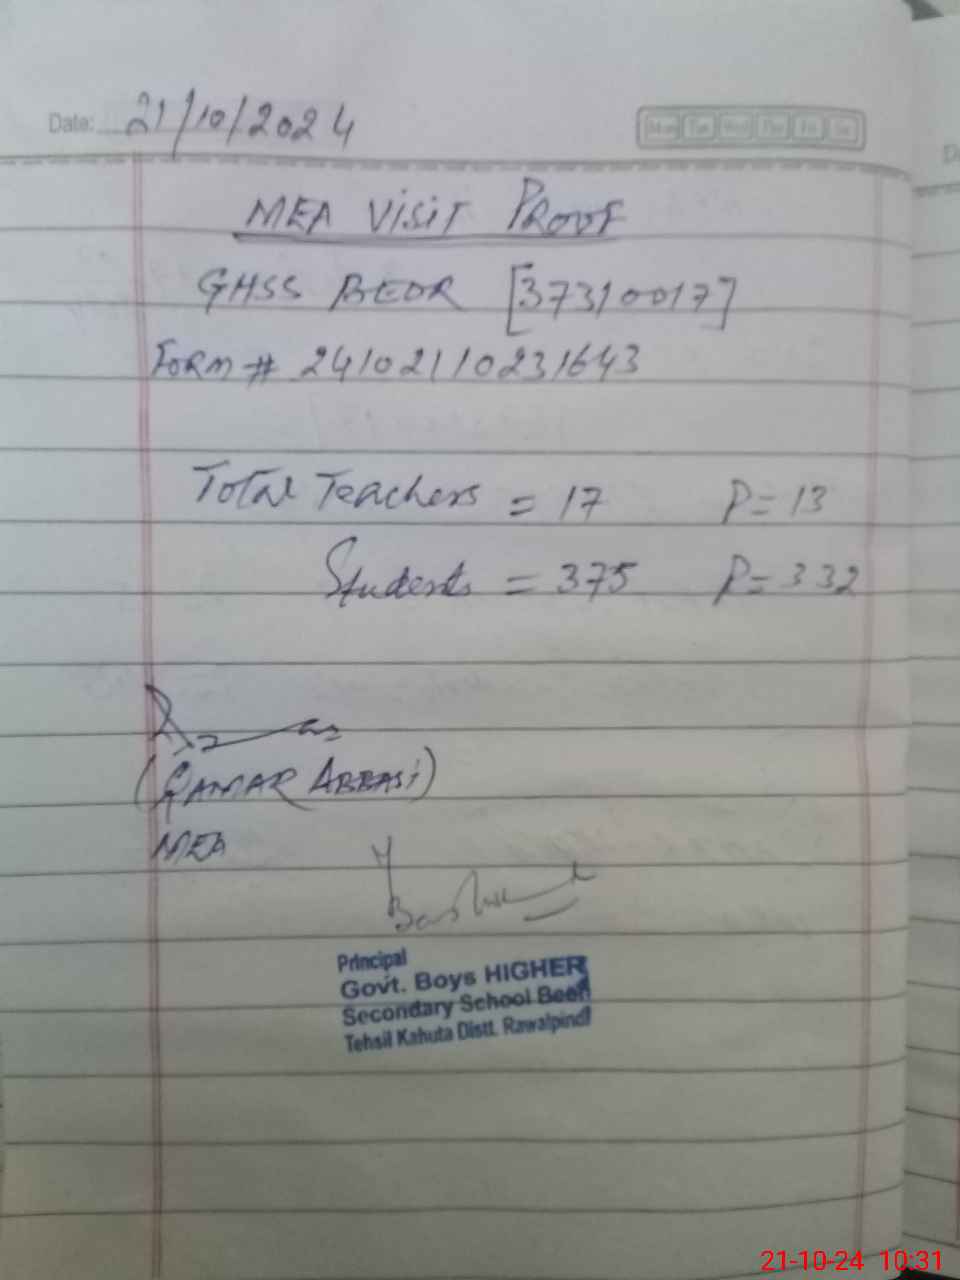 Date: 21/10/2024
Mon Tue Wed Thu Fri Sat
MEA VISIT PROOF
GHSS BEOR [37310017]
FORM # 24102110231643
Total Teachers = 17 P= 13
Students = 375 P= 332
(QAMAR ABBASI)
MEA
Principal
Govt. Boys HIGHER
Secondary School Beor
Tehsil Kahuta Distt. Rawalpindi
21-10-24 10:31